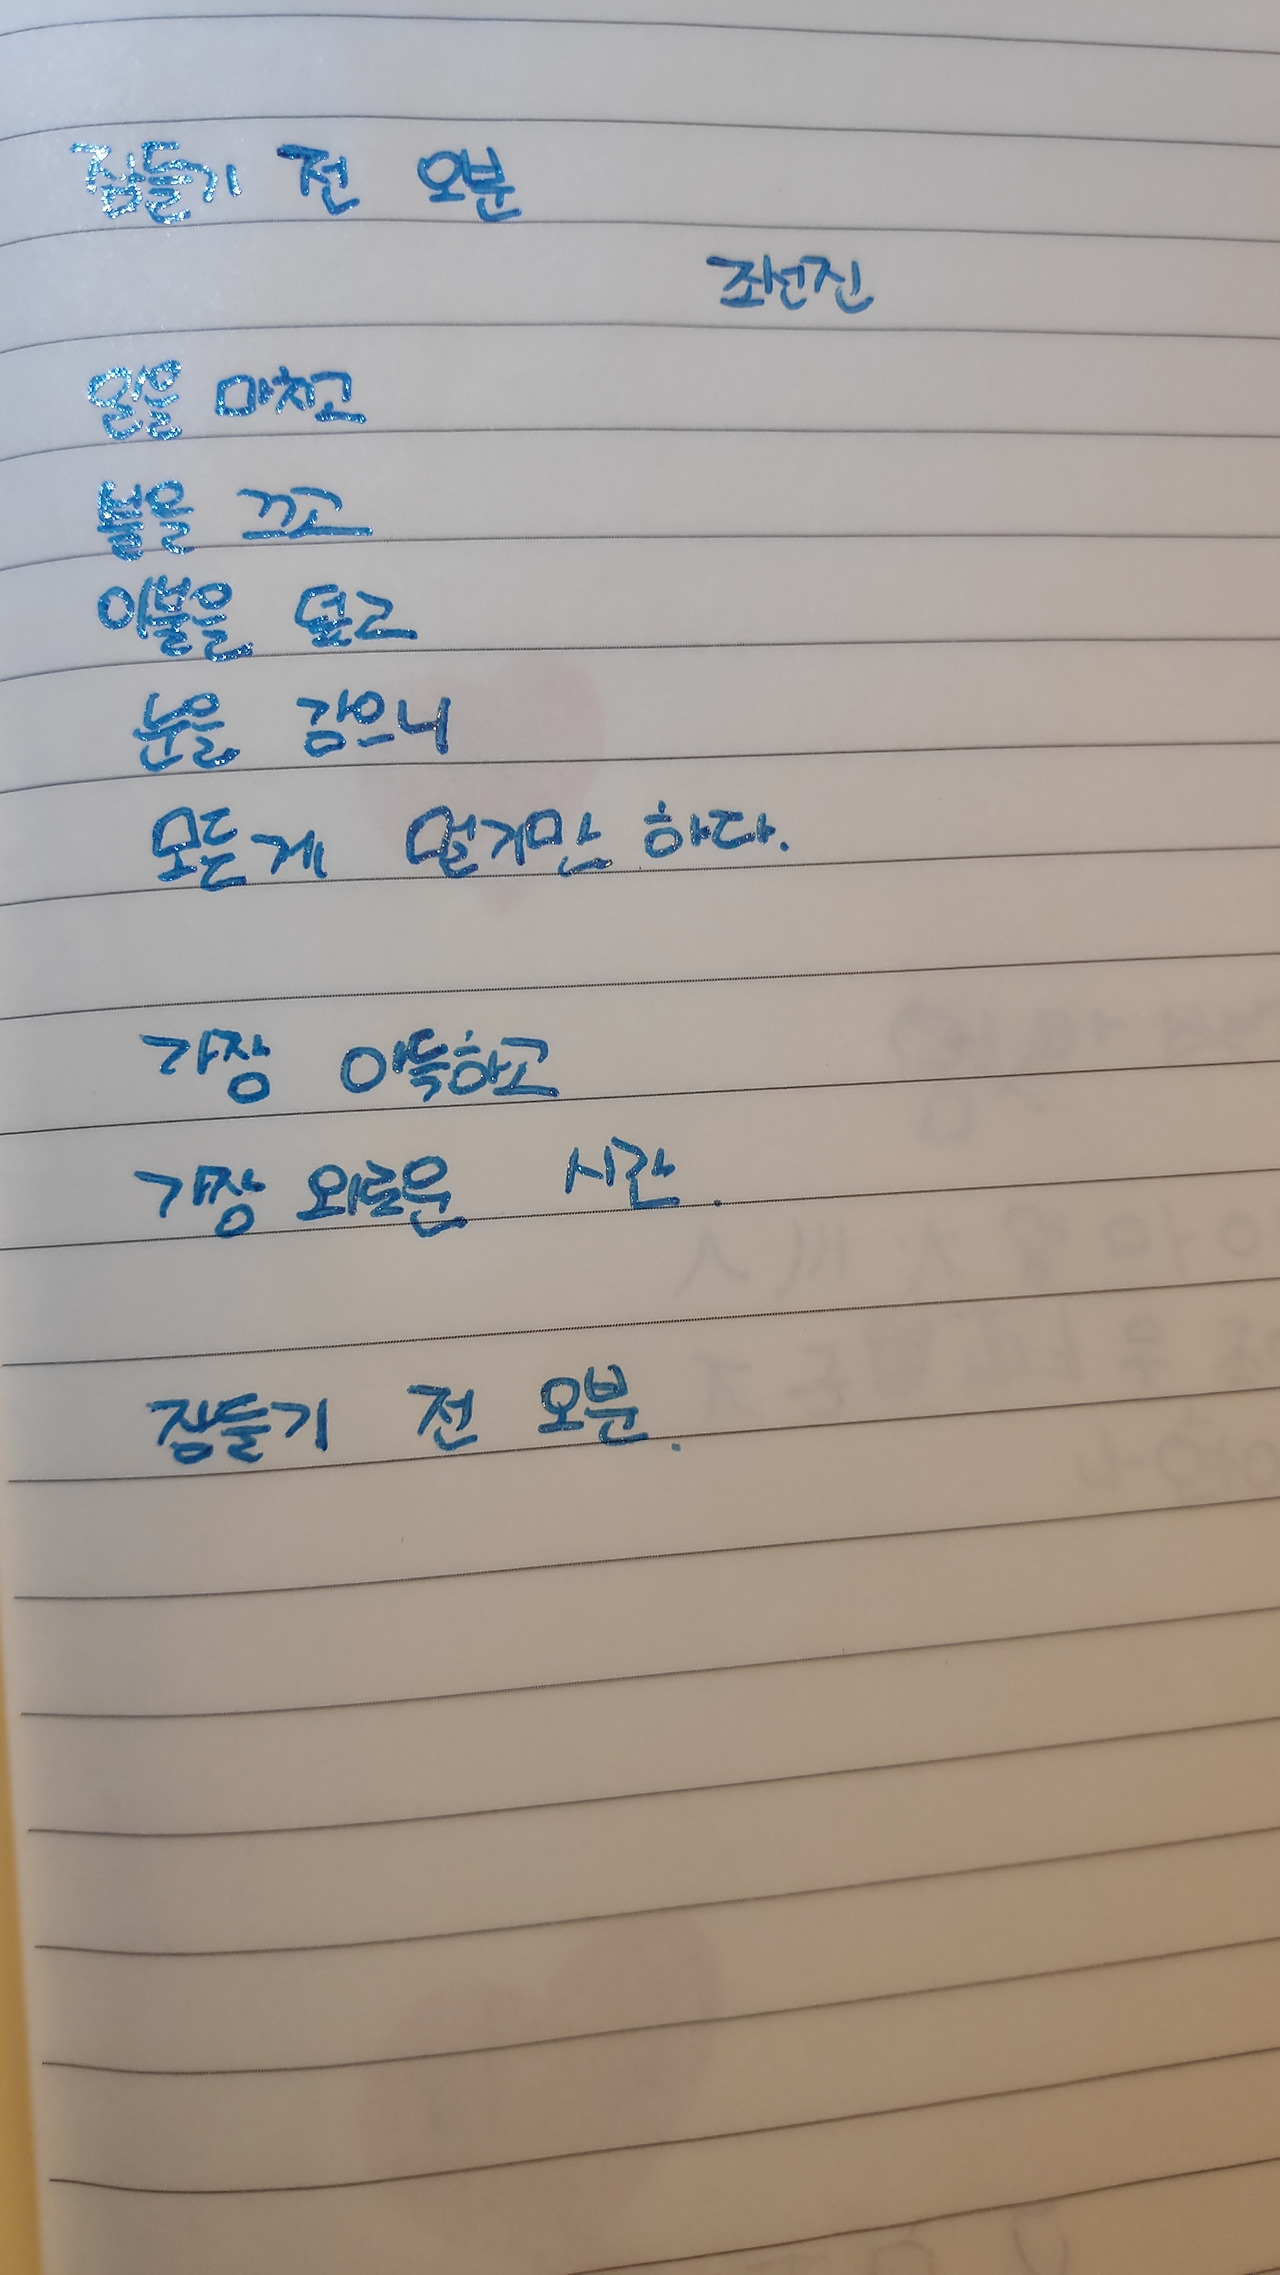 잠들기 전 오분
조선진
일을 마치고
불을 끄고
이불을 덮고
눈을 감으니
모든게 멀기만 하다.
가장 아득하고
가장 외로운 시간.
잠들기 전 오분.